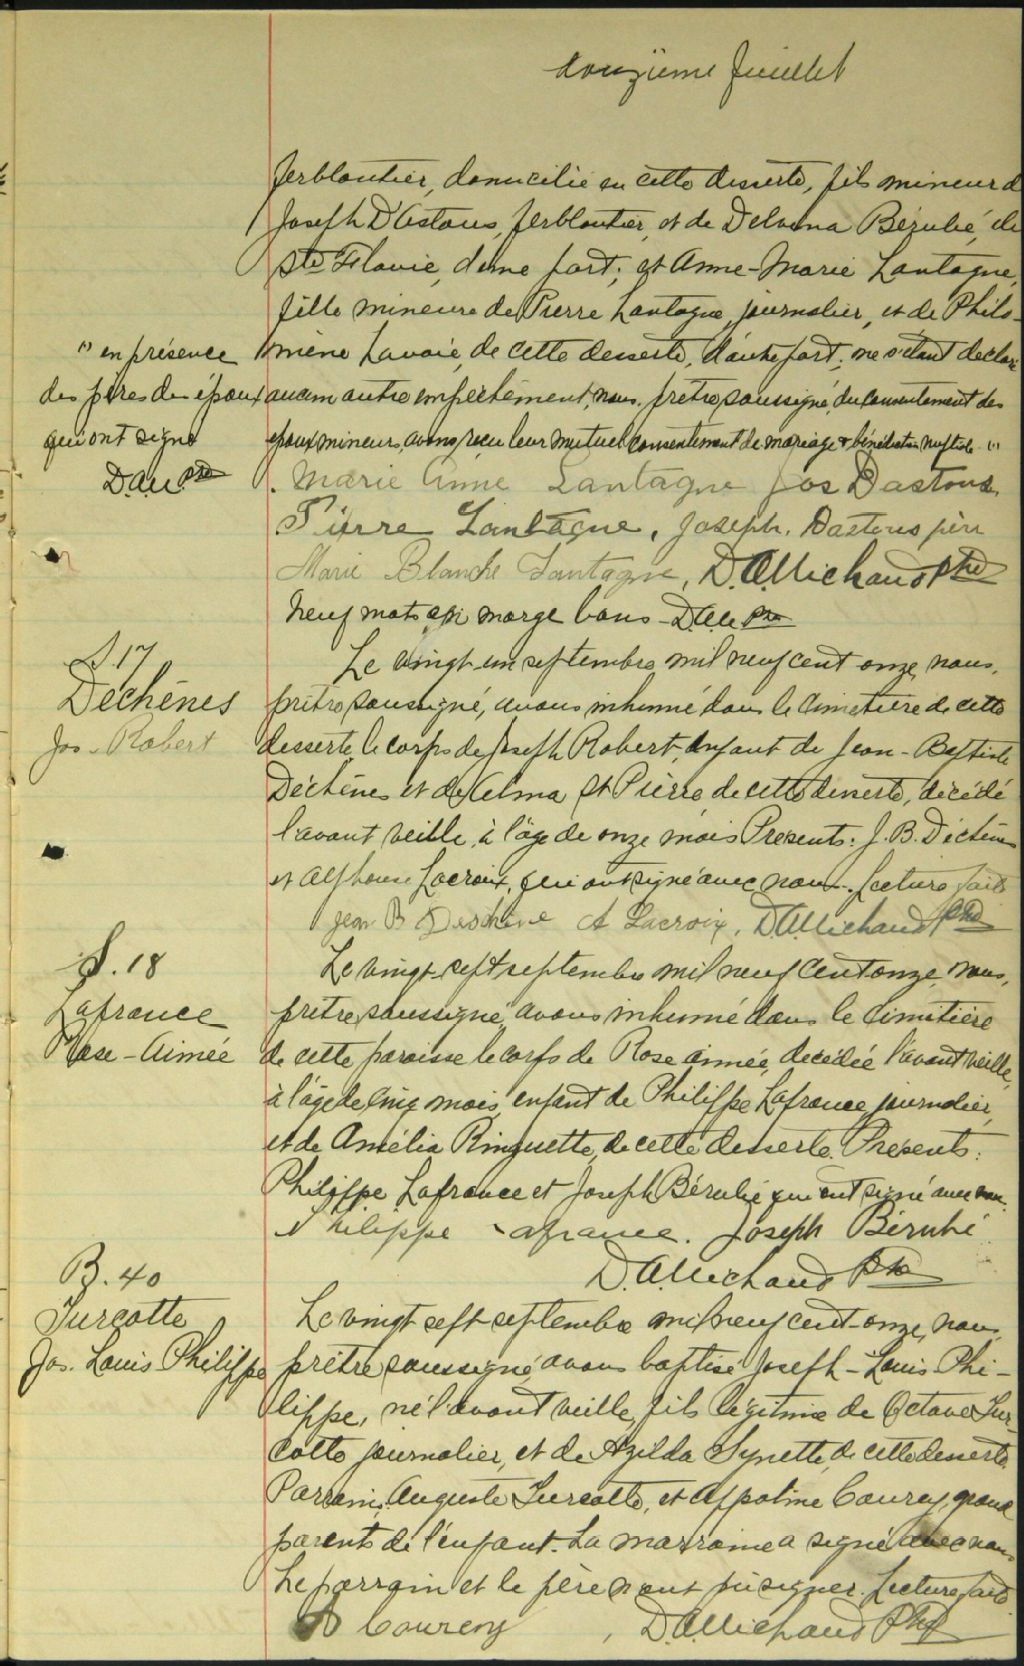 douzième feuillet
ferblantier, domicilié en cette desserte, fils mineur d
Joseph D'Astous, ferblantier, et de Delvina Bérubé, de
Ste Flavie, d'une part; et Anne-Marie Lantagne,
fille mineure de Pierre Lantagne, journalier, et de Philo-
mène Lavoie, de cette desserte, d'autre part; ne s'étant déclaré
aucun autre empêchement, nous, prêtre soussigné, du consentement des
époux mineurs, avons reçu leur mutuel consentement de mariage & bénédiction nuptiale (1)
(1) en présence
des pères des époux
qui ont signé
D.A.M. ptre
Marie Anne Lantagne Jos Dastous
Pierre Lantagne, Joseph Dastous père
Marie Blanche Lantagne, D.A. Michaud Ptre
Neuf mots en marge bons - D.A.M. Ptre
S. 17
Dechênes
Jos. Robert
Le vingt-un septembre mil neuf cent onze, nous,
prêtre soussigné, avons inhumé dans le cimetière de cette
desserte, le corps de Joseph Robert, enfant de Jean-Baptiste
Déchênes et de Alma St Pierre de cette desserte, décédé
l'avant veille, à l'âge de onze mois Présents: J. B. Déchênes
et Alphonse Lacroix, qui ont signé avec nous. Lecture faite
Jean B Deschène A Lacroix, D.A. Michaud Ptre
S. 18
Lafrance
Rose-Aimée
Le vingt-sept septembre mil neuf cent onze, nous,
prêtre soussigné, avons inhumé dans le cimetière
de cette paroisse le corps de Rose aimée, decédée l'avant veille,
à l'âge de cinq mois, enfant de Philippe Lafrance, journalier,
et de Amélia Ringuette, de cette desserte. Présents:
Philippe Lafrance et Joseph Bérubé qui ont signé avec nous.
Philippe Lafrance. Joseph Bérubé
D.A. Michaud Ptre
B. 40
Turcotte
Jos. Louis Philippe
Le vingt-sept septembre mil neuf cent-onze, nous,
prêtre soussigné, avons baptisé Joseph-Louis Phi-
lippe, né l'avant veille, fils légitime de Octave Tur-
cotte journalier, et de Azilda Synette, de cette desserte.
Parrain, Auguste Turcotte, et Appoline Courcy, grand
parents de l'enfant. La marraine a signé avec nous
Le parrain et le père n'ont pu signer. Lecture faite
A Courcy, D.A. Michaud Ptre